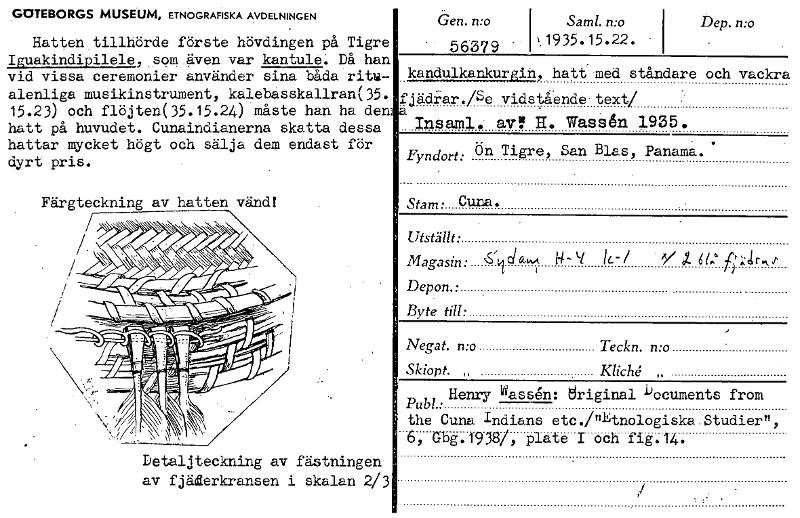 GÖTEBORGS MUSEUM, ETNOGRAFISKA AVDELNINGEN
Hatten tillhörde förste hövdingen på Tigre
Iguakindipilele, som även var kantule. Då han
vid vissa ceremonier använder sina båda ritu-
alenliga musikinstrument, kalebasskallran(35.
15.23) och flöjten(35.15.24) måste han ha denna
hatt på huvudet. Cunaindianerna skatta dessa
hattar mycket högt och sälja dem endast för
dyrt pris.
Färgteckning av hatten vänd!
Detaljteckning av fästningen
av fjäderkransen i skalan 2/3
Gen. n:o
56379
Saml. n:o
1935.15.22.
Dep. n:o
kandulkankurgin, hatt med ståndare och vackra
fjädrar./Se vidstående text/
Insaml. av: H. Wassén 1935.
Fyndort: Ön Tigre, San Blas, Panama.
Stam: Cuna.
Utställt:
Magasin: Sydam H-4 k-1 2 blå fjädrar
Depon.:
Byte till:
Negat. n:o
Teckn. n:o
Skiopt. „
Kliché „
Publ.: Henry Wassén: Original Documents from
the Cuna Indians etc./"Etnologiska Studier",
6, Gbg.1938/, plate I och fig.14.